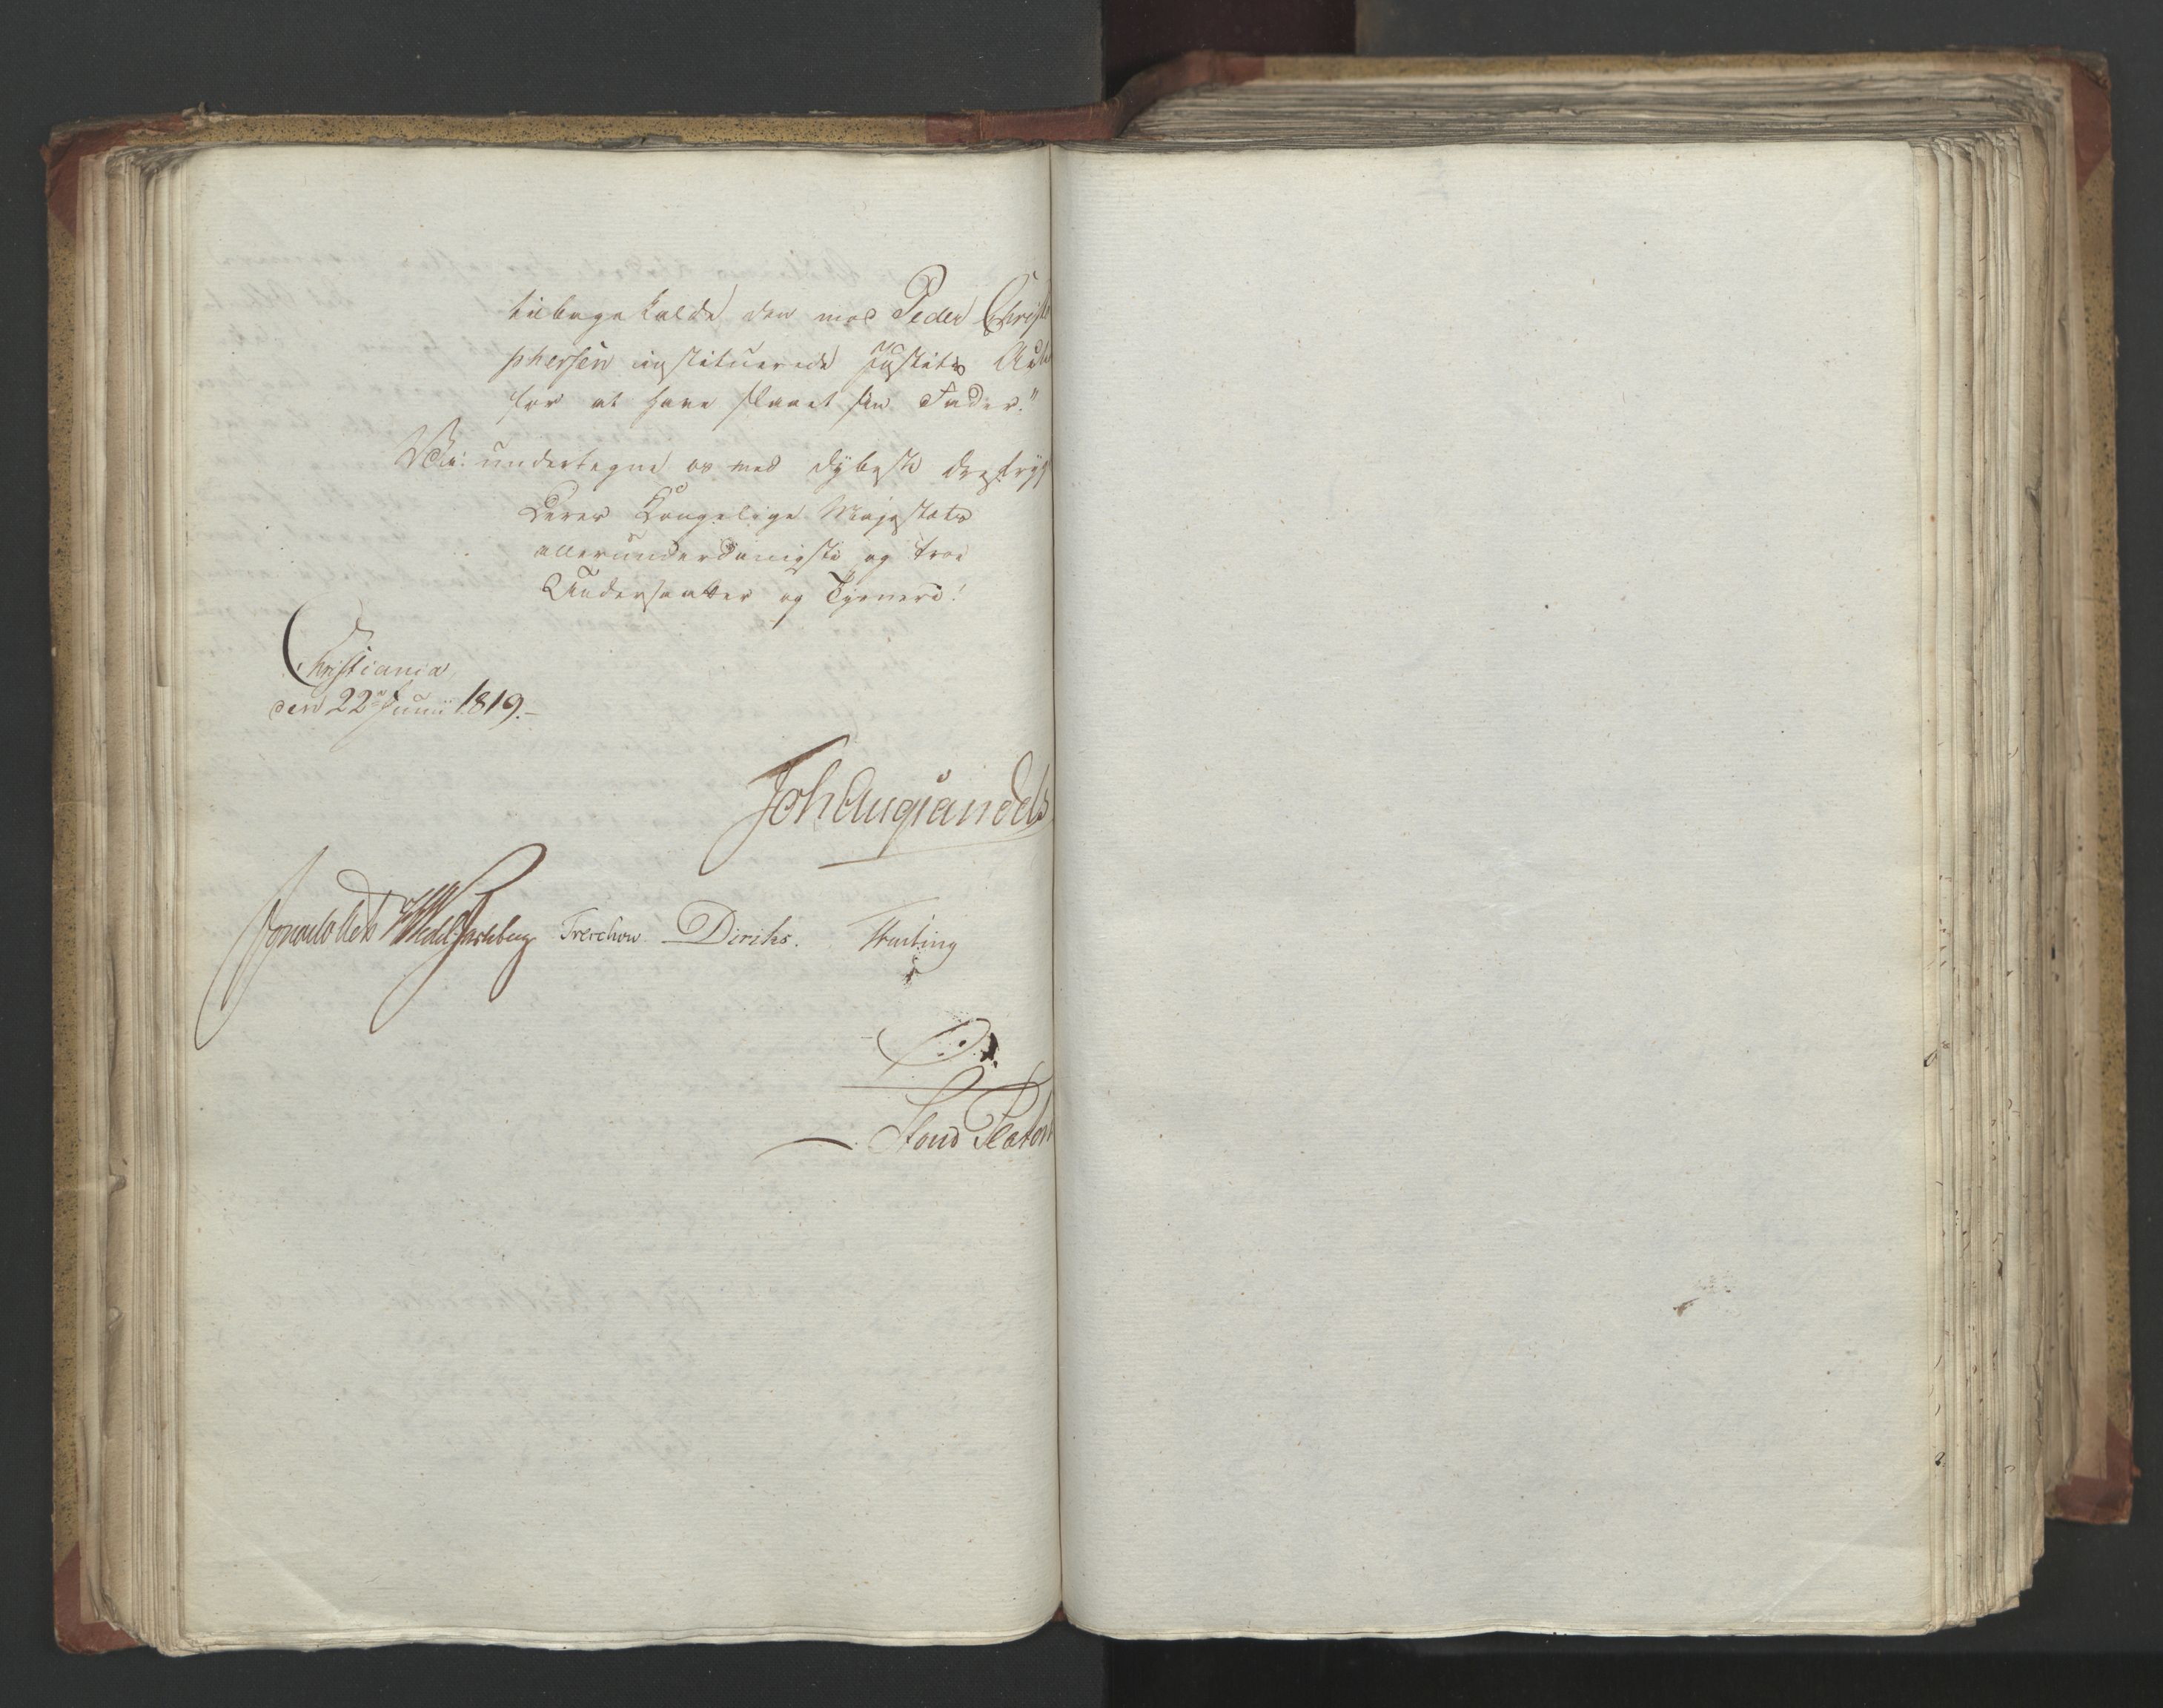 tilbagekalde den mod Peder Christo
phersen instituerede Justits Acti
for at have slaaet sin Fader."
Vi undertegne os med dybeste Ærefrygt
Deres Kongelige Majestæts
allerunderdanigste og troe
Undersaatter og Tjenere!
Christiania,
den 22de Junii 1819.–
Joh Aug Sandels
Jonas Collett HWedel Jarlsberg Treschow Diriks. Krebting